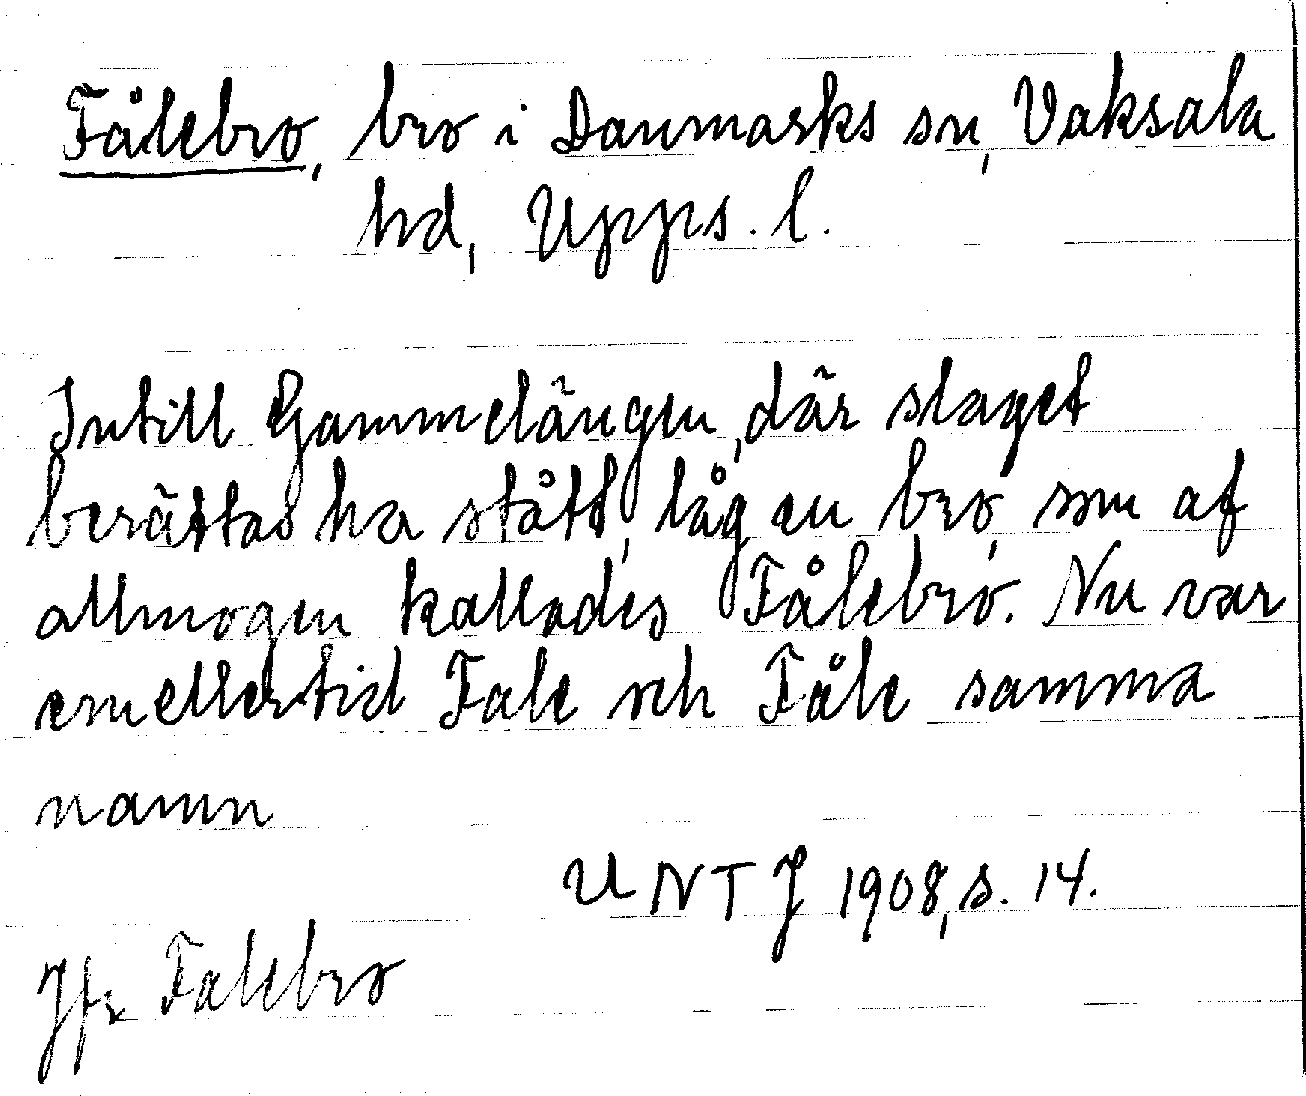 Fålebro, bro i Danmarks sn, Vaksala
hd, Upps. l.
Intill Gammelängen, där slaget
berättas ha stått, låg en bro, som af
allmogen kallades Fålebro. Nu var
emellertid Fale och Fåle samma
namn
UNT J 1908, s. 14.
Jfr Falebro